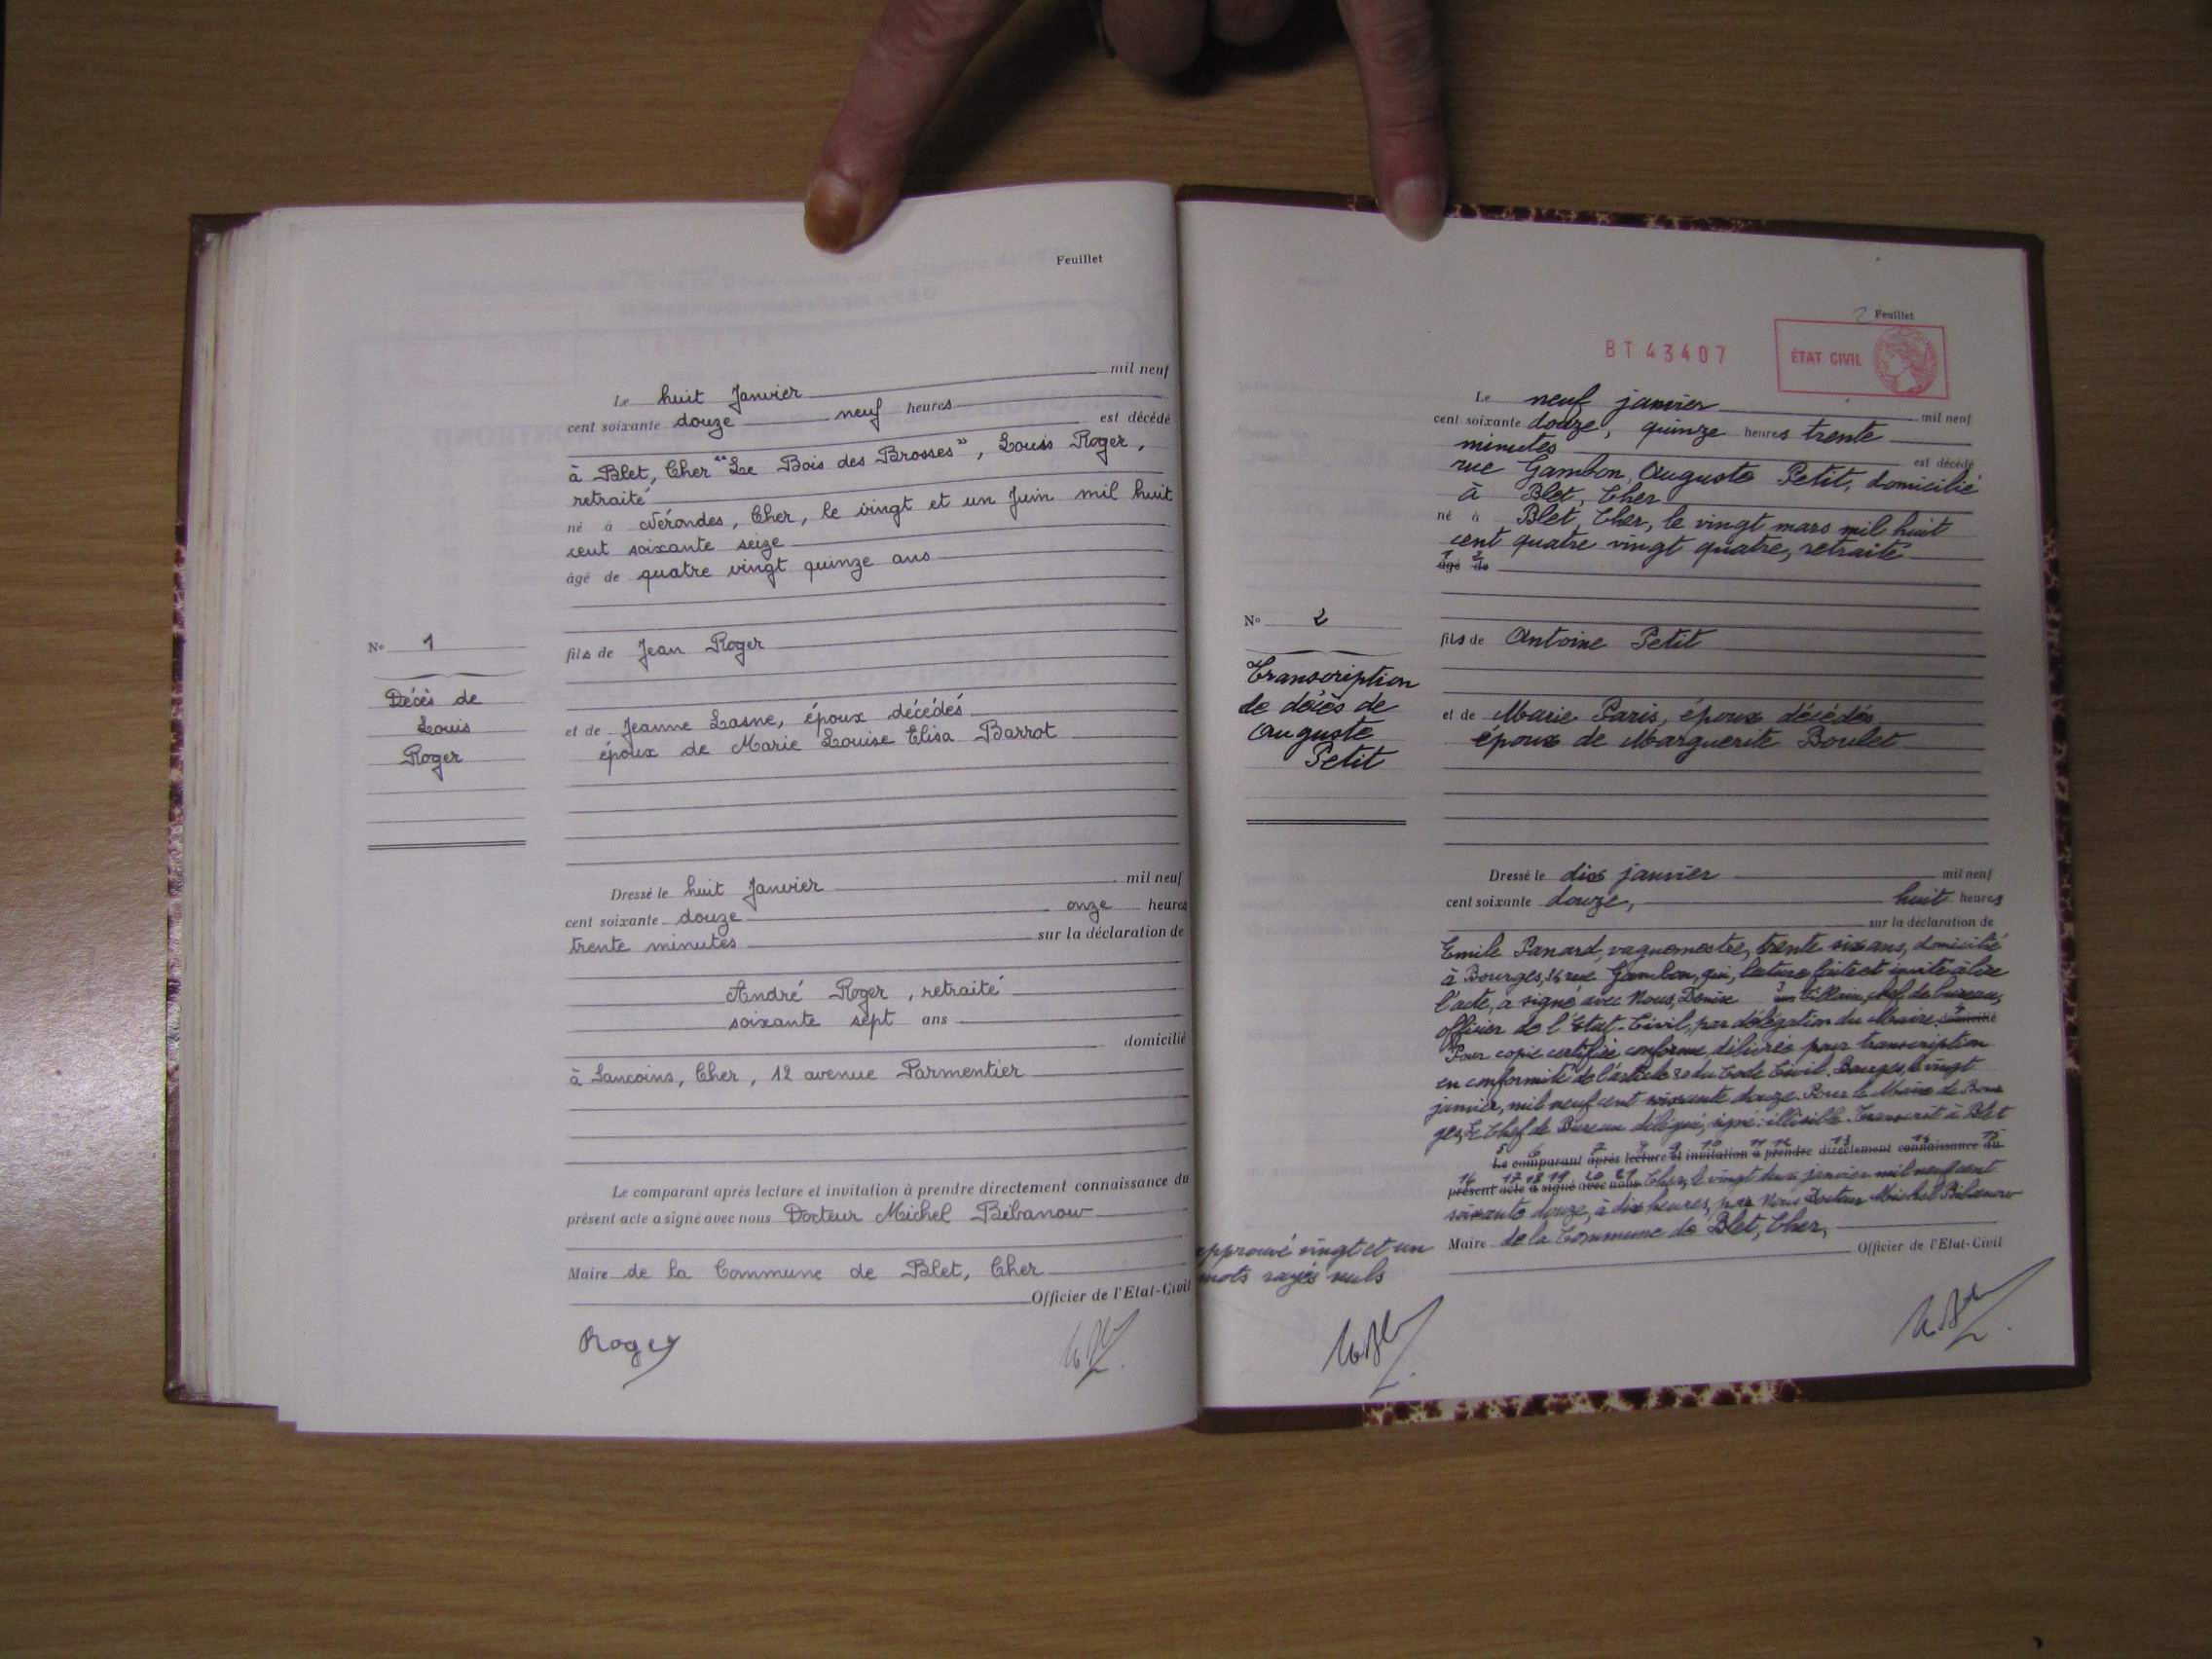 Feuillet
Le huit Janvier mil neuf
cent soixante douze neuf heures est décédé
à Blet, Cher "Le Bois des Brosses", Louis Roger,
retraité
né à Nérondes, Cher, le vingt et un Juin mil huit
cent soixante seize
âgé de quatre vingt quinze ans
No 1
Décès de
Louis
Roger
fils de Jean Roger
et de Jeanne Lasne, époux décédés
époux de Marie Louise Elisa Barrot
Dressé le huit Janvier mil neuf
cent soixante douze onze heures
trente minutes sur la déclaration de
André Roger, retraité
soixante sept ans
domicilié
à Sancoins, Cher, 12 avenue Parmentier
Le comparant après lecture et invitation à prendre directement connaissance du
présent acte a signé avec nous Docteur Michel Bibanow
Maire de la Commune de Blet, Cher
Officier de l'Etat-Civil
Roger
2 Feuillet
BT 43407
ÉTAT CIVIL
Le neuf janvier mil neuf
cent soixante douze, quinze heures trente
minutes est décédé
rue Gambon, Auguste Petit, domicilié
à Blet, Cher
né à Blet, Cher, le vingt mars mil huit
cent quatre vingt quatre, retraité
1 2
âgé de
No 2
Transcription
de décès de
Auguste
Petit
fils de Antoine Petit
et de Marie Paris, époux décédés
époux de Marguerite Boulet
Dressé le dix janvier mil neuf
cent soixante douze, huit heures
sur la déclaration de
Emile Panard, vaguemestre, trente six ans, domicilié
à Bourges, rue Gambon, qui, lecture faite et invité à lire
l'acte, a signé avec Nous, Denise 3 ans Villain, chef de bureau,
officier de l'Etat-Civil, par délégation du Maire. domicilié
Pour copie certifiée conforme, délivrée pour transcription
en conformité de l'article 80 du Code Civil. Bourges, le vingt
janvier, mil neuf cent soixante douze. Pour le Maire de Bour
ges, Le Chef de Bureau délégué, signé: illisible. Transcrit à Blet
5 6 7 8 9 10 11 12 13 14 15
Le comparant après lecture et invitation à prendre directement connaissance du
16 17 18 19 20 21
présent acte a signé avec nous Cher, le vingt deux janvier mil neuf cent
soixante douze, à dix heures, par Nous Docteur Michel Bibanow
Maire de la Commune de Blet, Cher,
Officier de l'Etat-Civil
approuvé vingt et un
mots rayés nuls